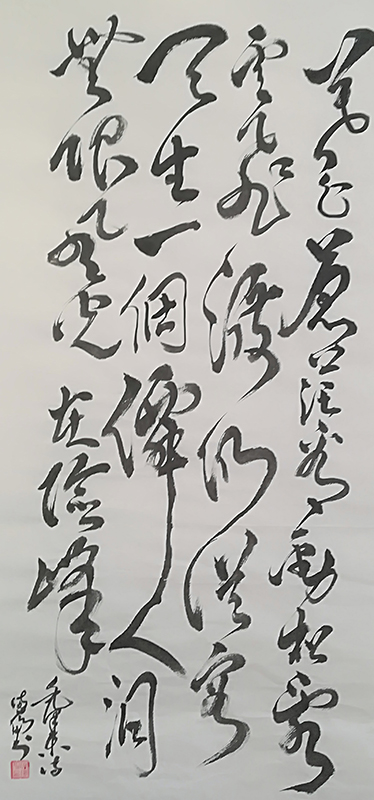 暮色蒼茫看勁松亂
雲飛渡仍從容
天生一個僊人洞
無限風光在險峰
毛澤東詩